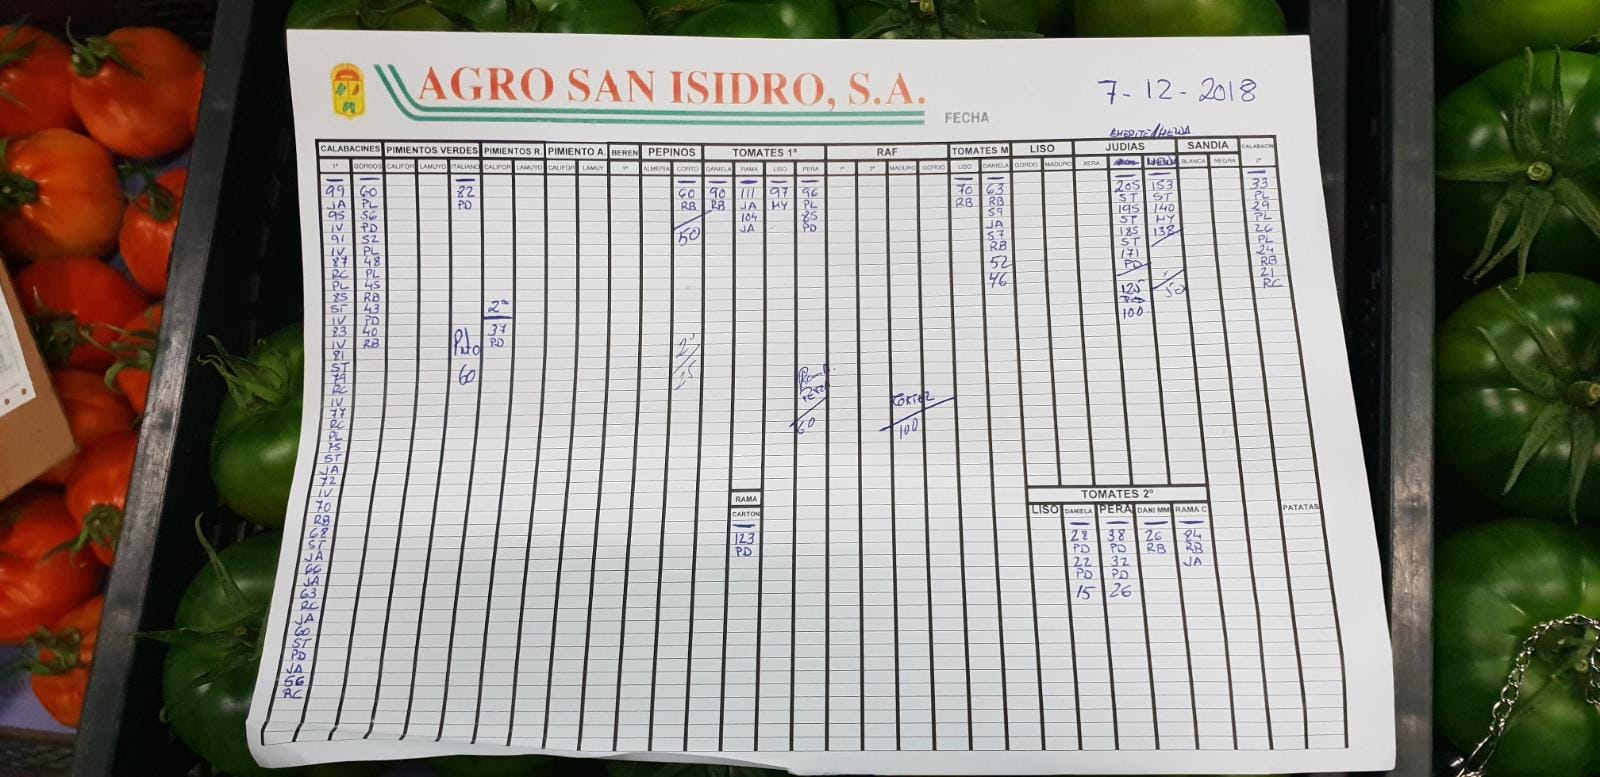 AGRO SAN ISIDRO, S.A.
FECHA
7-12-2018
CALABACINES PIMIENTOS VERDES PIMIENTOS R. PIMIENTO A. BEREN PEPINOS TOMATES 1ª RAF TOMATES M LISO JUDIAS SANDIA CALABACIN
1ª GORDOS CALIFOR LAMUYO ITALIANO CALIFOR LAMUYO CALIFOR LAMUY 1ª ALMERIA CORTO DANIELA RAMA LISO PERA 1ª 2ª MADURO GORDO LISO DANIELA GORDO MADURO XERA BLANCA NEGRA 2ª
99 60 82 60 90 111 97 96 70 63 205 153 33
JA PL PD RB RB JA MY PL RB RB ST ST PL
95 56 104 85 59 195 140 29
IV PD JA PD JA ST MY PL
91 52 50 57 185 138 26
IV PL RB ST PL
87 48 52 171 24
RC PL PD RB
PL 45 46 125 50 21
85 RB RC
ST 43 2ª 100
IV PD
83 40 37
IV RB PD
81
ST 60
79
RC
IV
77
RC 60 100
PL
75
ST
JA
72
IV RAMA TOMATES 2º
70 CARTON LISO DANIELA PERA DANI MM RAMA C PATATAS
RB
68 123 28 38 26 84
ST PD PD PD RB RB
JA 22 32 JA
66 PD PD
JA 15 26
63
RC
JA
60
ST
PD
JA
56
RC